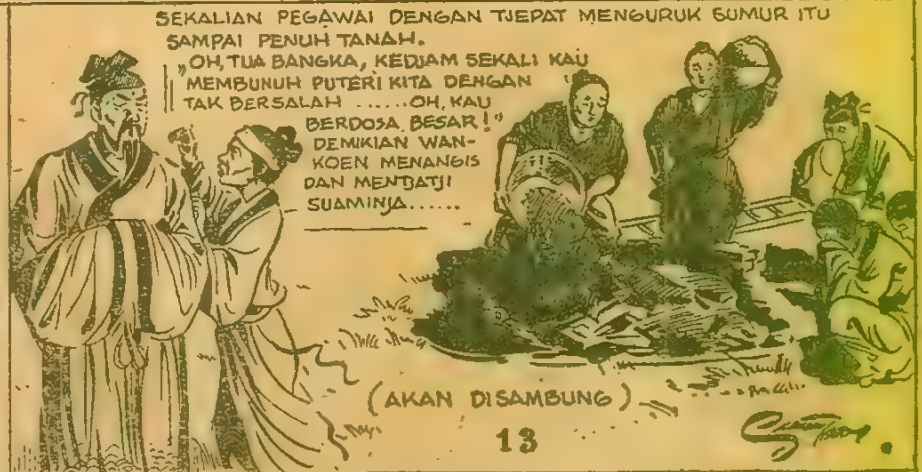 SEKALIAN PEGAWAI DENGAN TJEPAT MENGURUK SUMUR ITU
SAMPAI PENUH TANAH.
„OH, TUA BANGKA, KEDJAM SEKALI KAU
MEMBUNUH PUTERI KITA DENGAN
TAK BERSALAH ......OH, KAU
BERDOSA BESAR!"
DEMIKIAN WAN-
KOEN MENANGIS
DAN MENTJATJI
SUAMINJA......
(AKAN DISAMBUNG)
13